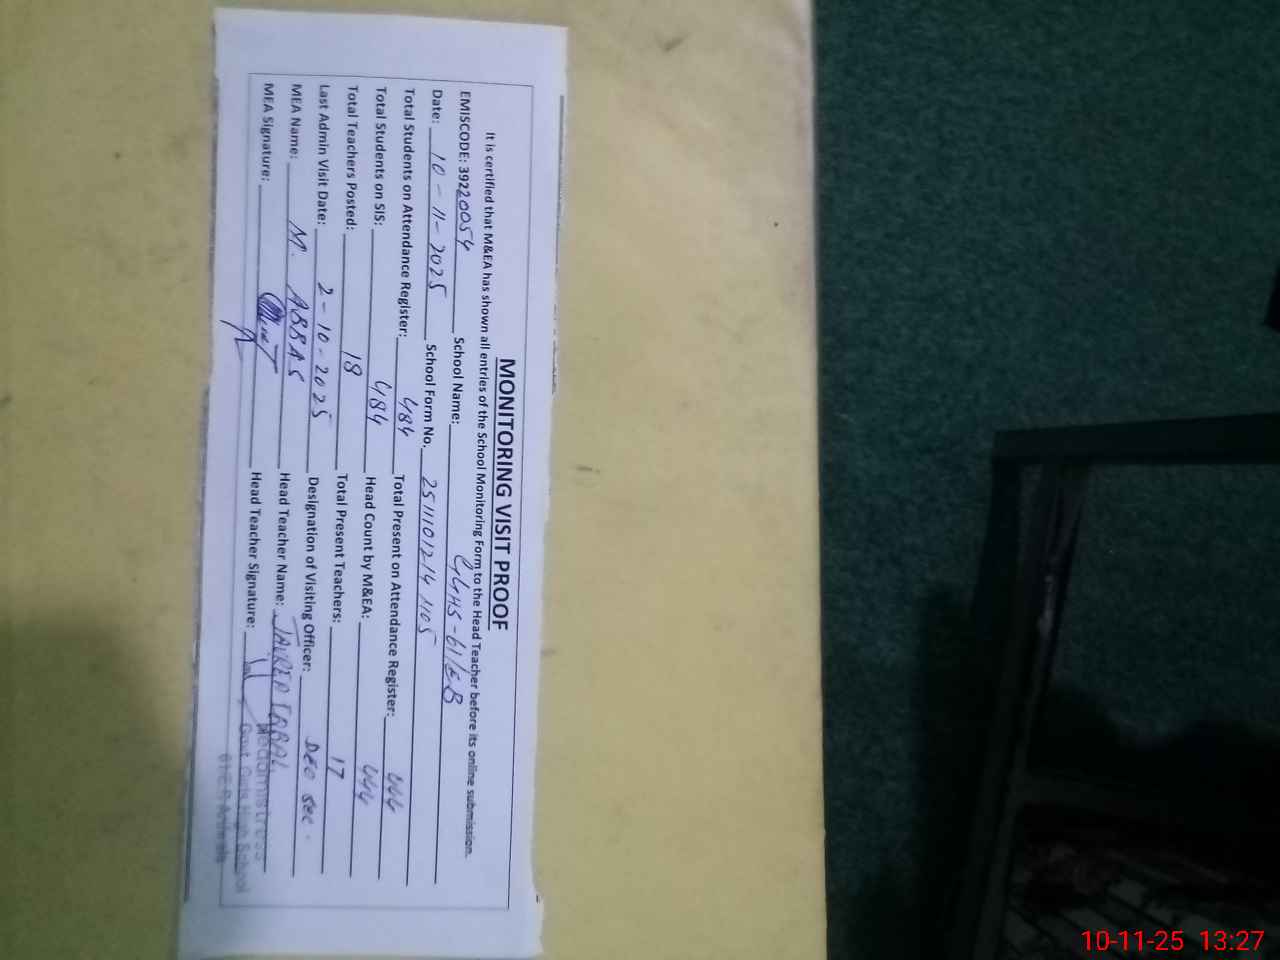 MONITORING VISIT PROOF
It is certified that M&EA has shown all entries of the School Monitoring Form to the Head Teacher before its online submission.
EMISCODE: 39220054 School Name: GGHS-61/EB
Date: 10-11-2025 School Form No. 25111012141105
Total Students on Attendance Register: 484 Total Present on Attendance Register: 444
Total Students on SIS: 484 Head Count by M&EA: 444
Total Teachers Posted: 18 Total Present Teachers: 17
Last Admin Visit Date: 2-10-2025 Designation of Visiting Officer: DEO Sec.
MEA Name: M. ABBAS Head Teacher Name:
MEA Signature: Head Teacher Signature:
Headmistress
Govt. Girls High School
61/E.B
10-11-25 13:27